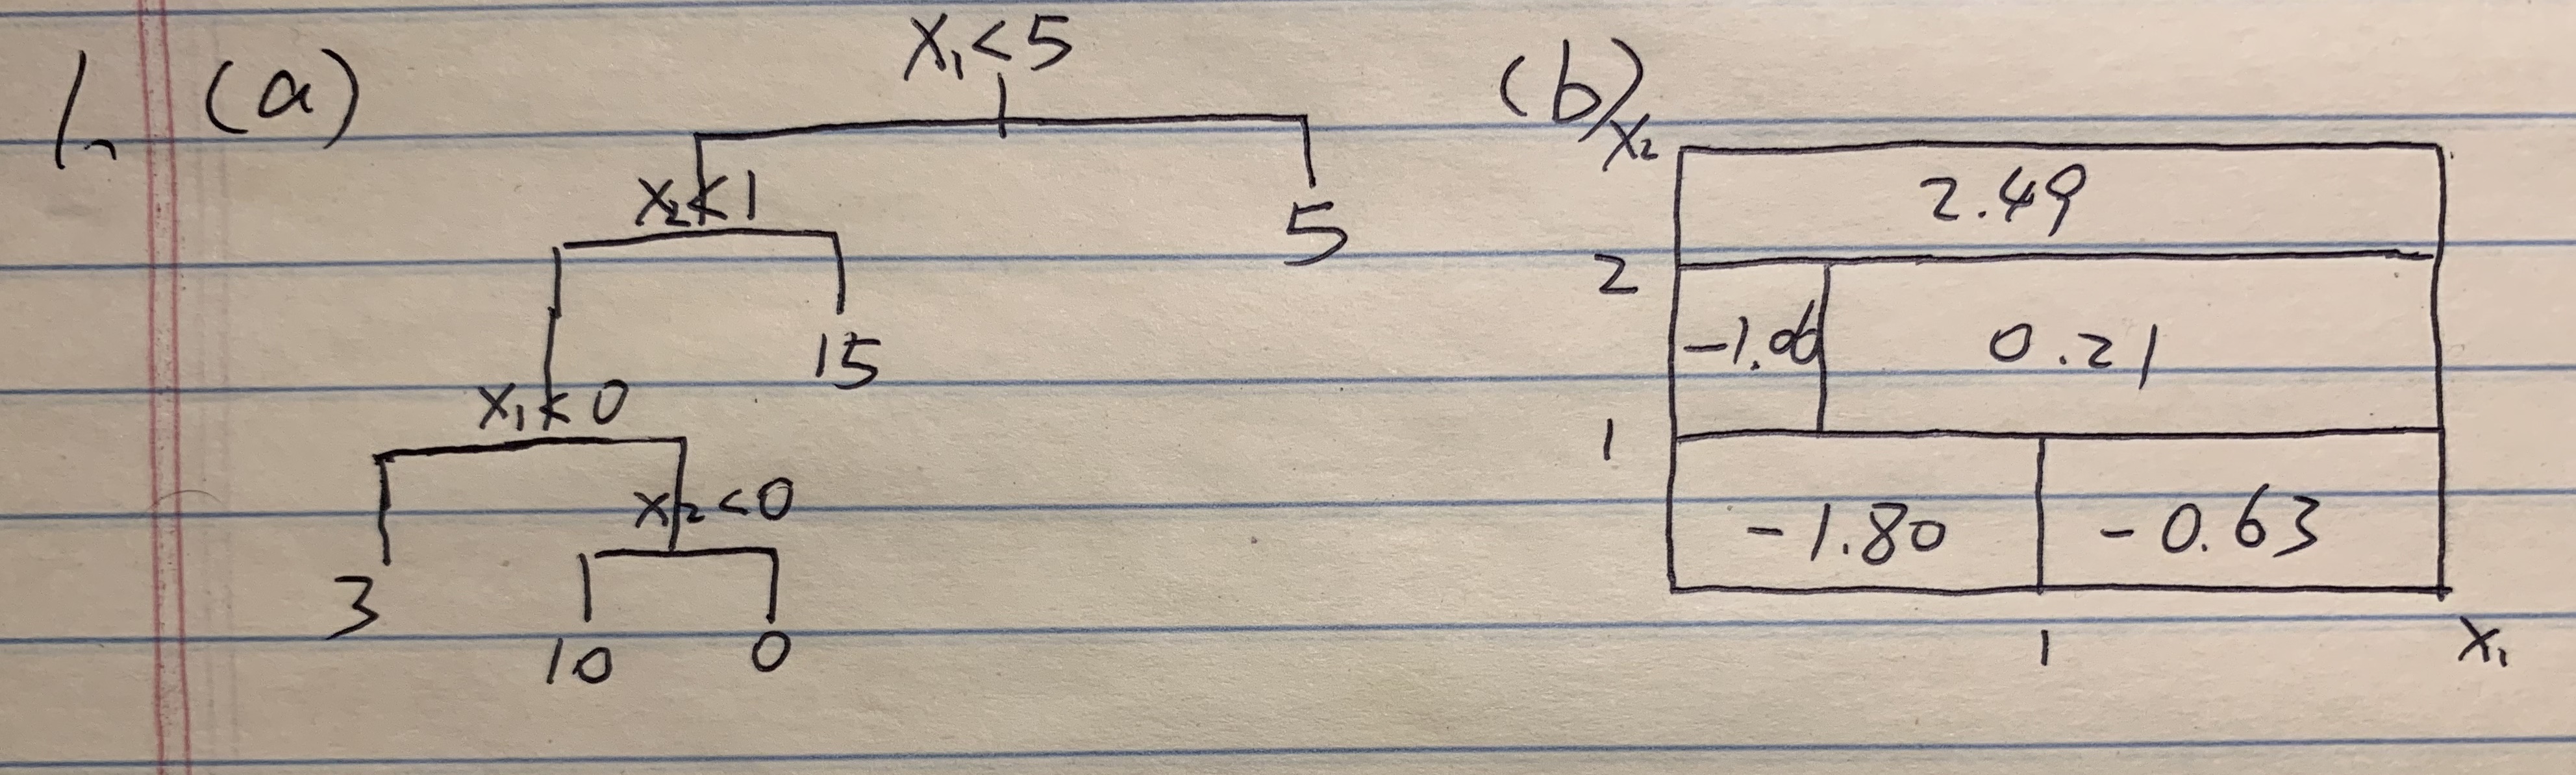 1. (a)
X₁<5
X₂<1
5
15
X₁<0
3
X₂<0
10 0
(b)
X₂
2.49
2
-1.06 0.21
1
-1.80 -0.63
1
X₁